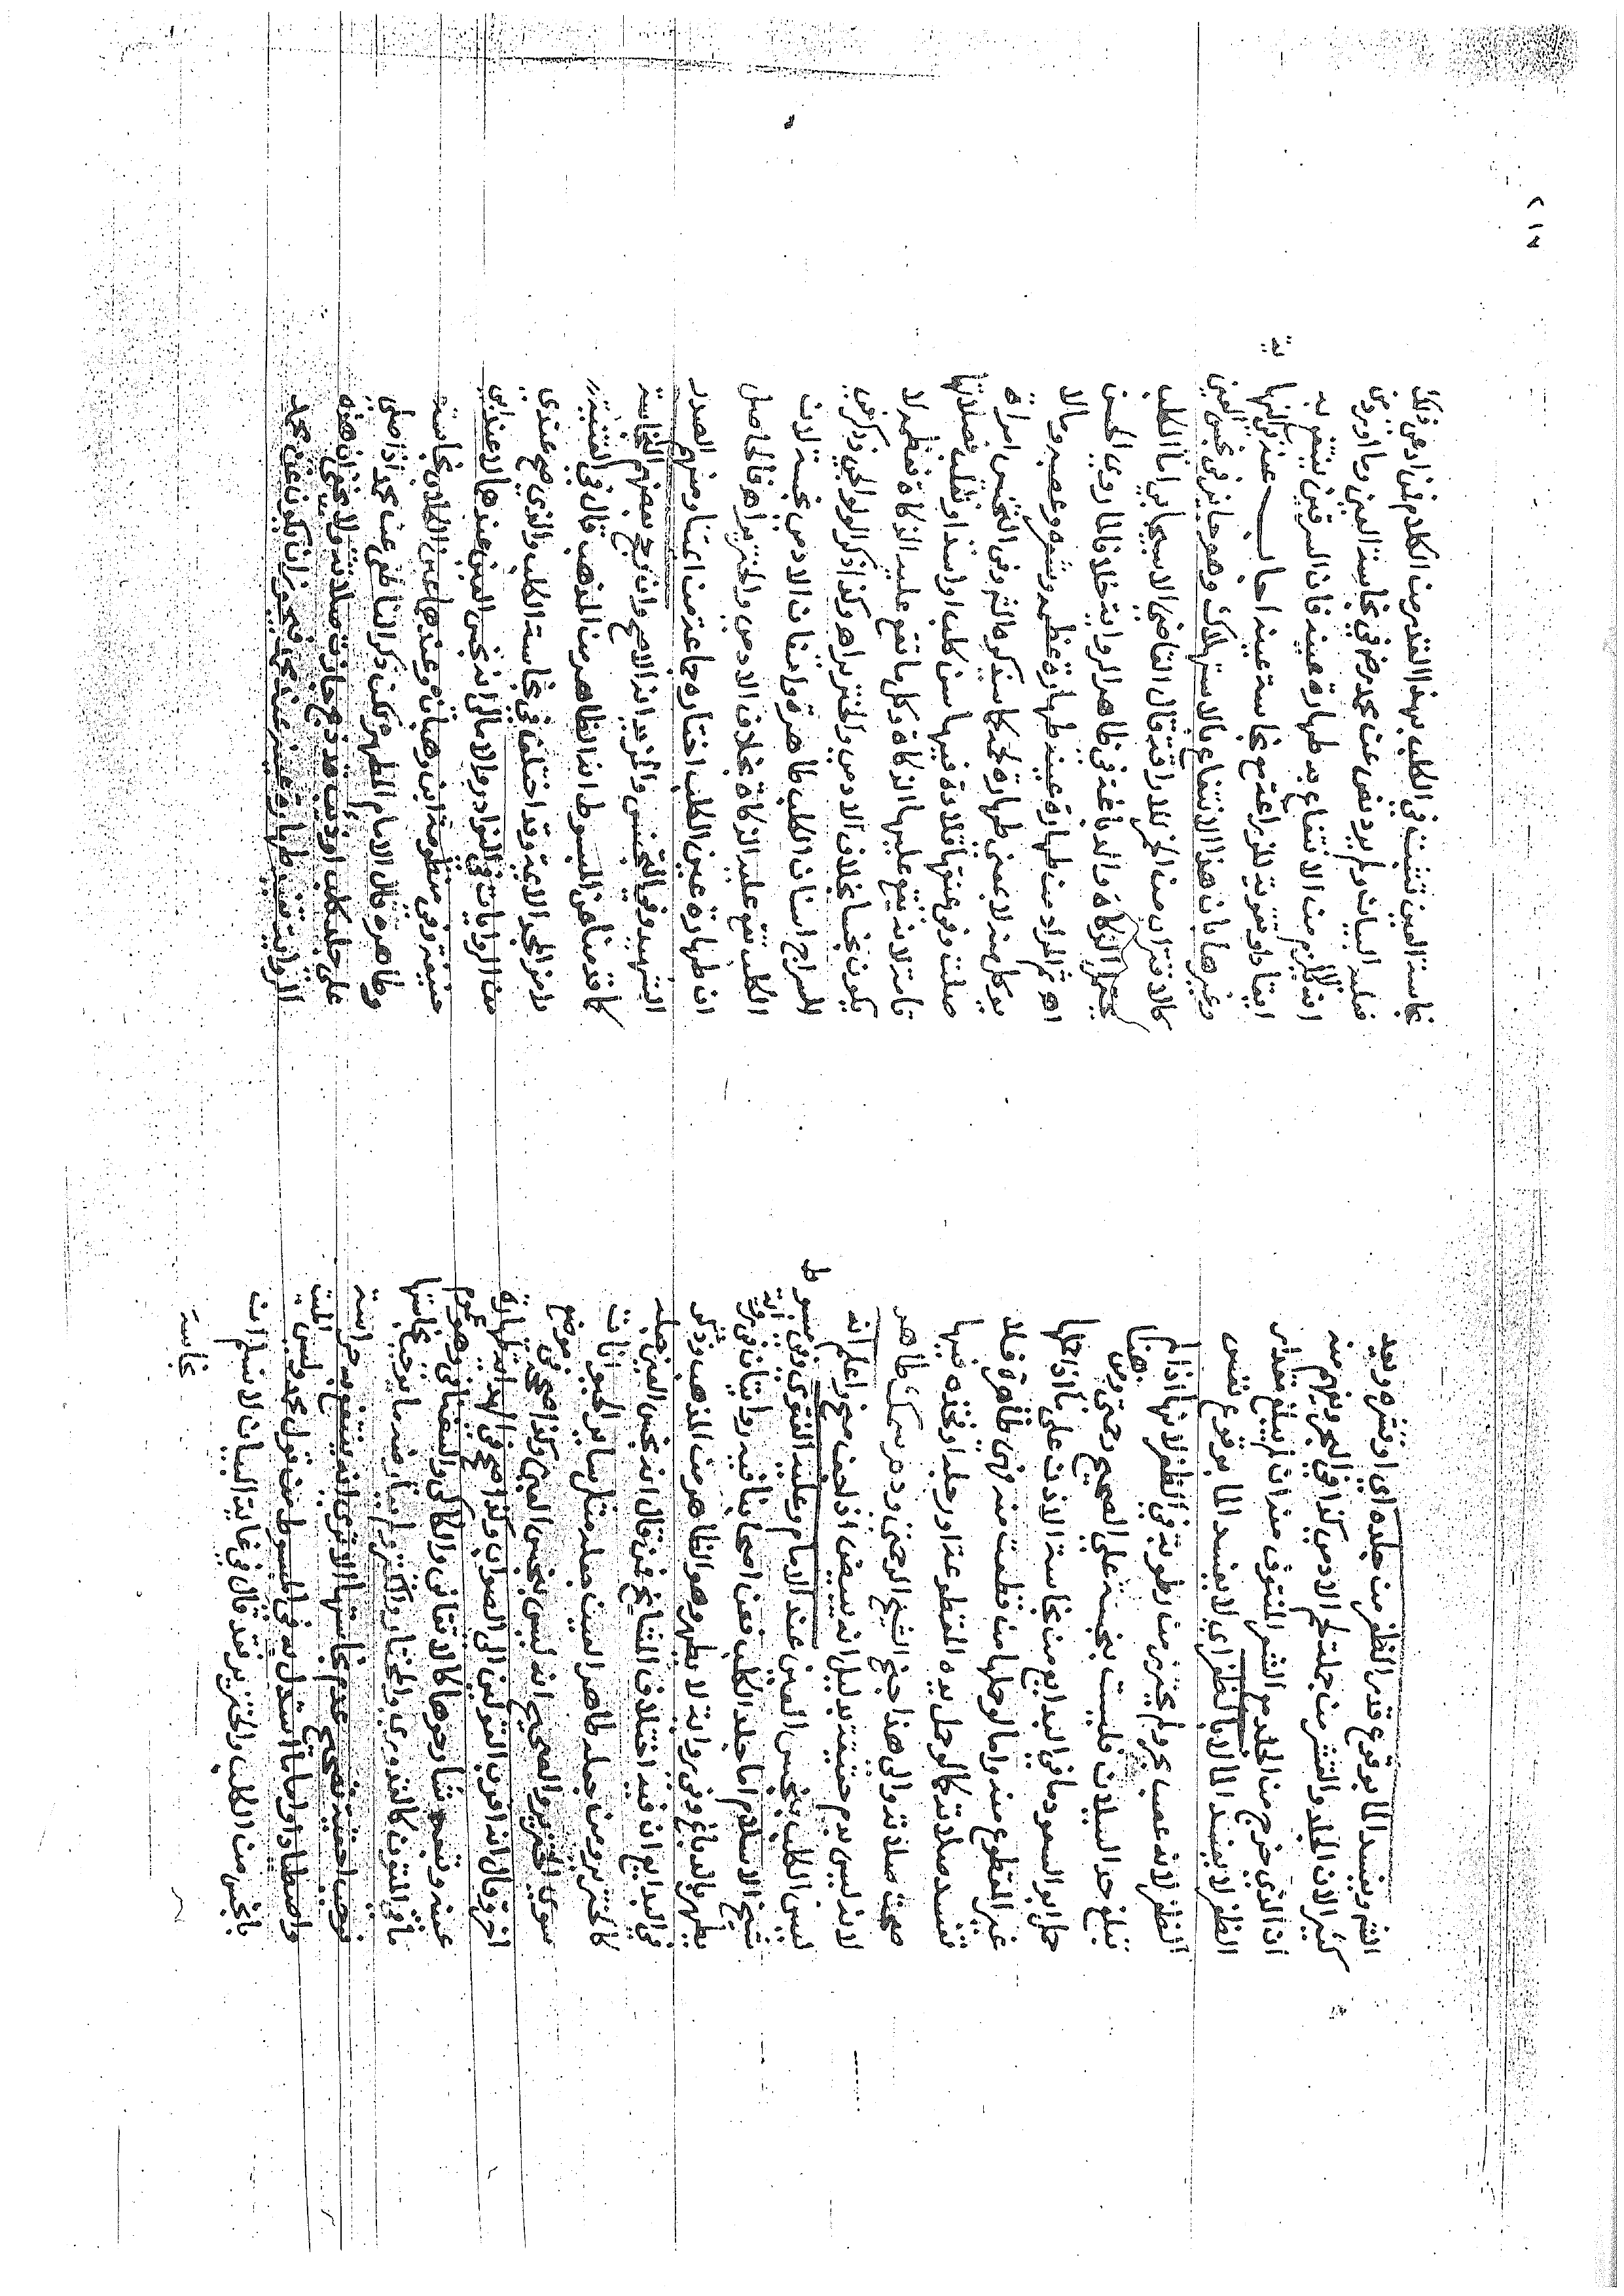 ويفسد الماء بوقوع قدر الظفر من جلده اي او قشره وبه
كثير لان الجلد والقشر من جملة لحم الادمي كذا في البحر ويفهم منه
ان الذي خرج من الجلد مع الشعر المنتوف منه ان لم يبلغ مقدار
الظفر لا يفسد الماء لا بالظفر اي لا يفسد الماء بوقوع نفس
الظفر لانه عصب بحر ولم يحترز من رطوبة في الظفر لانها اذا لم
تبلغ حد السيلان فليست بنجسة على الصحيح رحمتي ومن هنا
حمل ابو السعود ما في البدايع من نجاسة الاذن على ما اذا اخذها
غير المقطوع منه واما لو حملها من قطعت منه فهي طاهرة فلا
تفسد صلاته كما لو حمل يده المقطوعة او رجله او فخذه فيها
صحت صلاته والى هذا جنح الشيخ الرحمتي ودم سمك طاهر
لانه ليس بدم حقيقة بدليل انه يبيض اذا جف منح واعلم انه
ليس الكلب بنجس العين عند الامام وعليه الفتوى وفي مبسوط
شيخ الاسلام اما جلد الكلب فعن اصحابنا فيه روايتان في رواية
يطهر بالدباغ وفي رواية لا يطهر وهو الظاهر من المذهب وذكر
في البدايع ان فيه اختلاف المشايخ فمن قال انه نجس العين جعله
كالخنزير ومن جعله طاهر العين جعله مثل ساير الحيوانات
سوى الخنزير والصحيح انه ليس بنجس العين وكذا صححه في موضع
اخر وقال انه اقرب القولين الى الصواب وكذا صحح في الهداية طهارة
عينه وتبعه شارحوها كالاتقاني والكاكي والسغناقي وهو عموم
ما في المتون كالقدوري والمختار والكنز ولم يعارضه ما يوجب نجاستها
فوجب احقية تصحيح عدم نجاستها الا ترى انه ينتفع به حراسة
واصطيادا واما ما استدل به في المبسوط من قول محمد وليس الميت
بانجس من الكلب والخنزير فقد قال في غاية البيان لا نسلم ان
نجاسة
نجاسة العين تثبت في الكلب بهذا القدر من الكلام فمن ادعى ذلك
فعليه البيان ولم يرد نص عن محمد رضي في نجاسة العين وما اورد من
انه لا يلزم من الانتفاع به طهارة عينه فان السرقين ينتفع به
ايقادا وتقوية للزراعة مع نجاسة عينه اجاب عنه في النهاية
وغيرها بان هذا الانتفاع بالاستهلاك وهو جايز في نجس العين
كالاقتراب من الخمر للاراقة قال القاضي الاسبيجابي اما الكلب
يحتمل الزكاة والدباغة في ظاهر الرواية خلافا لما روي الحسن
اهـ ثم المراد من طهارة عينه طهارة عظمه وشعره وعصبه وما لا
يوكل منه لا بمعنى طهارة لحمه كاسيذكره الشر وفي التجنيس امراة
صلت وفي عنقها قلادة فيها سن كلب او اسد او ثعلب فصلاتها
تامة لانه يقع عليها الزكاة وكل ما تقع عليه الزكاة فعظمه لا
يكون نجسا بخلاف الادمي والخنزير اهـ وكذا ذكر الولوالجي وذكر في
السراج اسنان الكلب طاهرة واسنان الادمي نجسة لان
الكلب تقع عليه الزكاة بخلاف الادمي والخنزير اهـ فالحاصل
ان طهارة عين الكلب اختاره جماعة من ائمتنا ومنهم الصدر
الشهيد وفي التجنيس والمزيد انه الاصح وان رجح بعضهم النجاسة
كما قدمناه عن المبسوط انه الظاهر من المذهب قال في القنية
رامزا لمجد الائمة وقد اختلف في نجاسة الكلب والذي صح عندي
من الروايات في النوادر والامالي انه نجس العين عندهما لا عند ابي
حنيفة وفي منظومة ابن وهبان وعندهما عين الكلاب نجاسة
وطاهرة قال الامام المطهر لكن ذكر الناطفي عن محمد اذا صلى
على جلد كلب او ذئب قد ذبح جازت صلاته ولا يخفى ان هذه
الرواية تفيد طهارة عينه عند محمد فيجوز ان يكون عن محمد